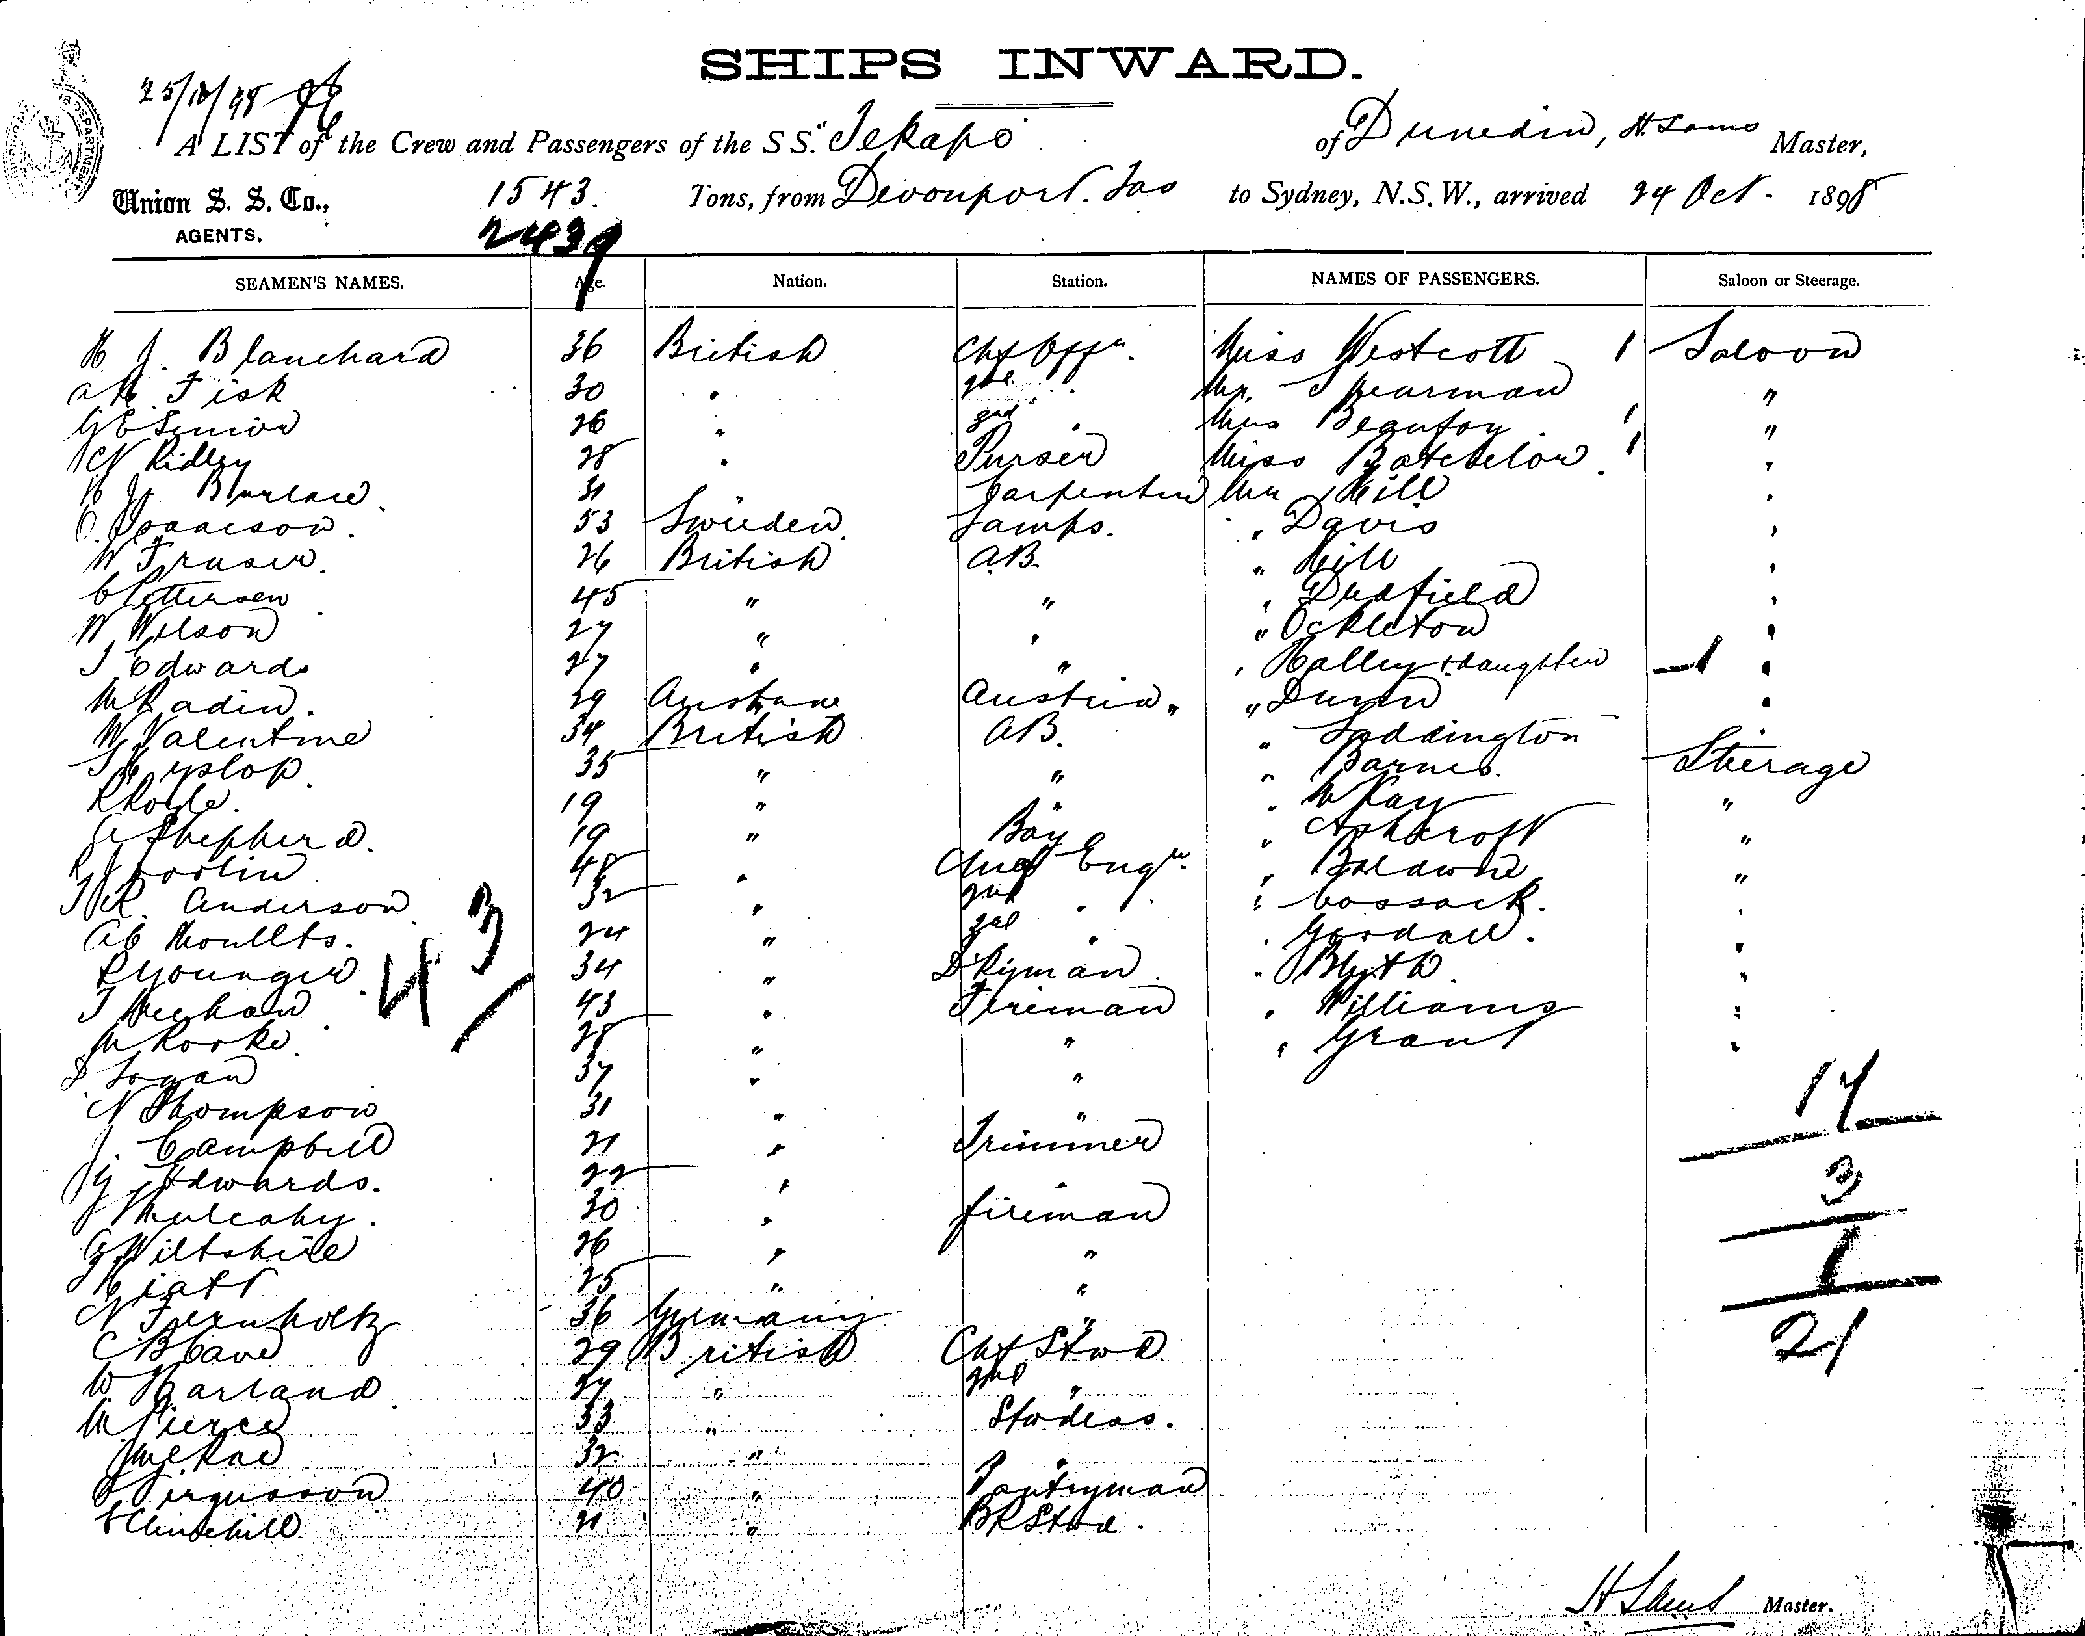 SHIPS INWARD.
25/10/98
A LIST of the Crew and Passengers of the S S. "Tekapo" of Dunedin, H Sams Master,
Union S. S. Co., 1543. Tons, from Devonport. Tas to Sydney, N.S.W., arrived 24 Oct. 1898
AGENTS. 2439
SEAMEN'S NAMES. Age. Nation. Station. NAMES OF PASSENGERS. Saloon or Steerage.
H J. Blanchard 36 British Chf Offr. Miss Westcott 1 Saloon
Fisk 30 " 2nd " Mr. Spearman "
G E Senior 26 " 3rd " Mrs Beaufoy 1 "
N Ridley 28 " Purser Miss Batchelor 1 "
31 Carpenter Mr Hill "
Isaacson. 53 Sweden. Lamps. " Davis "
W Fraser. 26 British A.B. " Hill "
C Pettersen 45 " " " Dudfield "
W Wilson 27 " " " Ockleton "
J Edwards 27 " " " Halley & daughter 1 "
M Radin. 29 Austrian Austria " " Dunn "
W Valentine 34 British AB. " Loddington
Hyslop 35 " " " Barnes. Steerage
R Royle. 19 " " " McKay "
Shepherd. 19 " Boy " Ashcroft "
48 " Chief Engr. " Baldwin "
Anderson 32 " 2nd " " Cossack. "
24 " 3rd " "
R Younger 34 " D'kyman " Blyth "
T Meehan 43 " Fireman " Williams "
M Rooke. 28 " " " Grant "
Logan 37 " "
N Thompson 31 " "
J. Campbell 21 " Trimmer
Edwards. 22 " "
J Mulcahy. 30 " fireman
G Wiltshire 26 " "
Hiatt 25 " "
N Fernholtz 36 Germany "
C B Cave 29 British Chf Stwd
W Garland 27 " 2nd "
M Pierce 33 " Stwdess.
McRae 32 " "
Fergusson 40 " Pantryman
Churchill 21 " BRStwd.
43
17
3
1
21
H Sams Master.